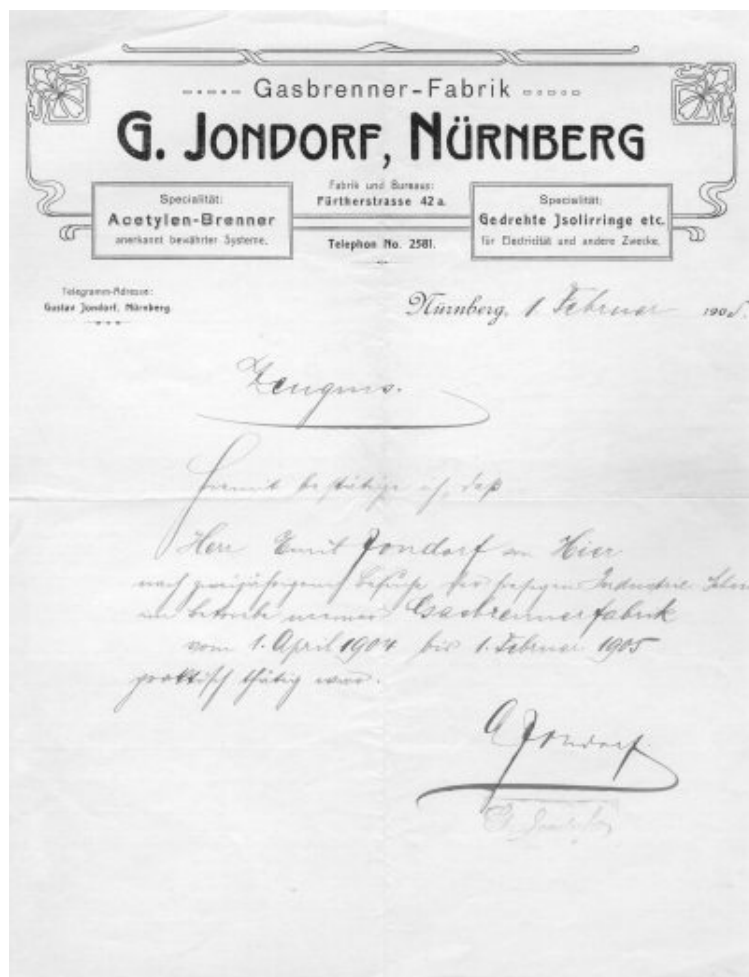 Gasbrenner-Fabrik
G. JONDORF, NÜRNBERG
Specialität:
Acetylen-Brenner
anerkannt bewährter Systeme.
Fabrik und Bureaus:
Fürtherstrasse 42 a.
Telephon No. 2581.
Specialität:
Gedrehte Jsolirringe etc.
für Electricität und andere Zwecke.
Telegramm-Adresse:
Gustav Jondorf, Nürnberg.
Nürnberg, 1 Februar 190
Zeugnis.
Hiermit bestätige ich, daß
Herr Emil Jondorf von Hier
nach zweijährigem Besuche der hiesigen Industrie
im betriebe meiner Gasbrennerfabrik
vom 1. April 1904 bis 1. Februar 1905
praktisch thätig war.
G Jondorf.